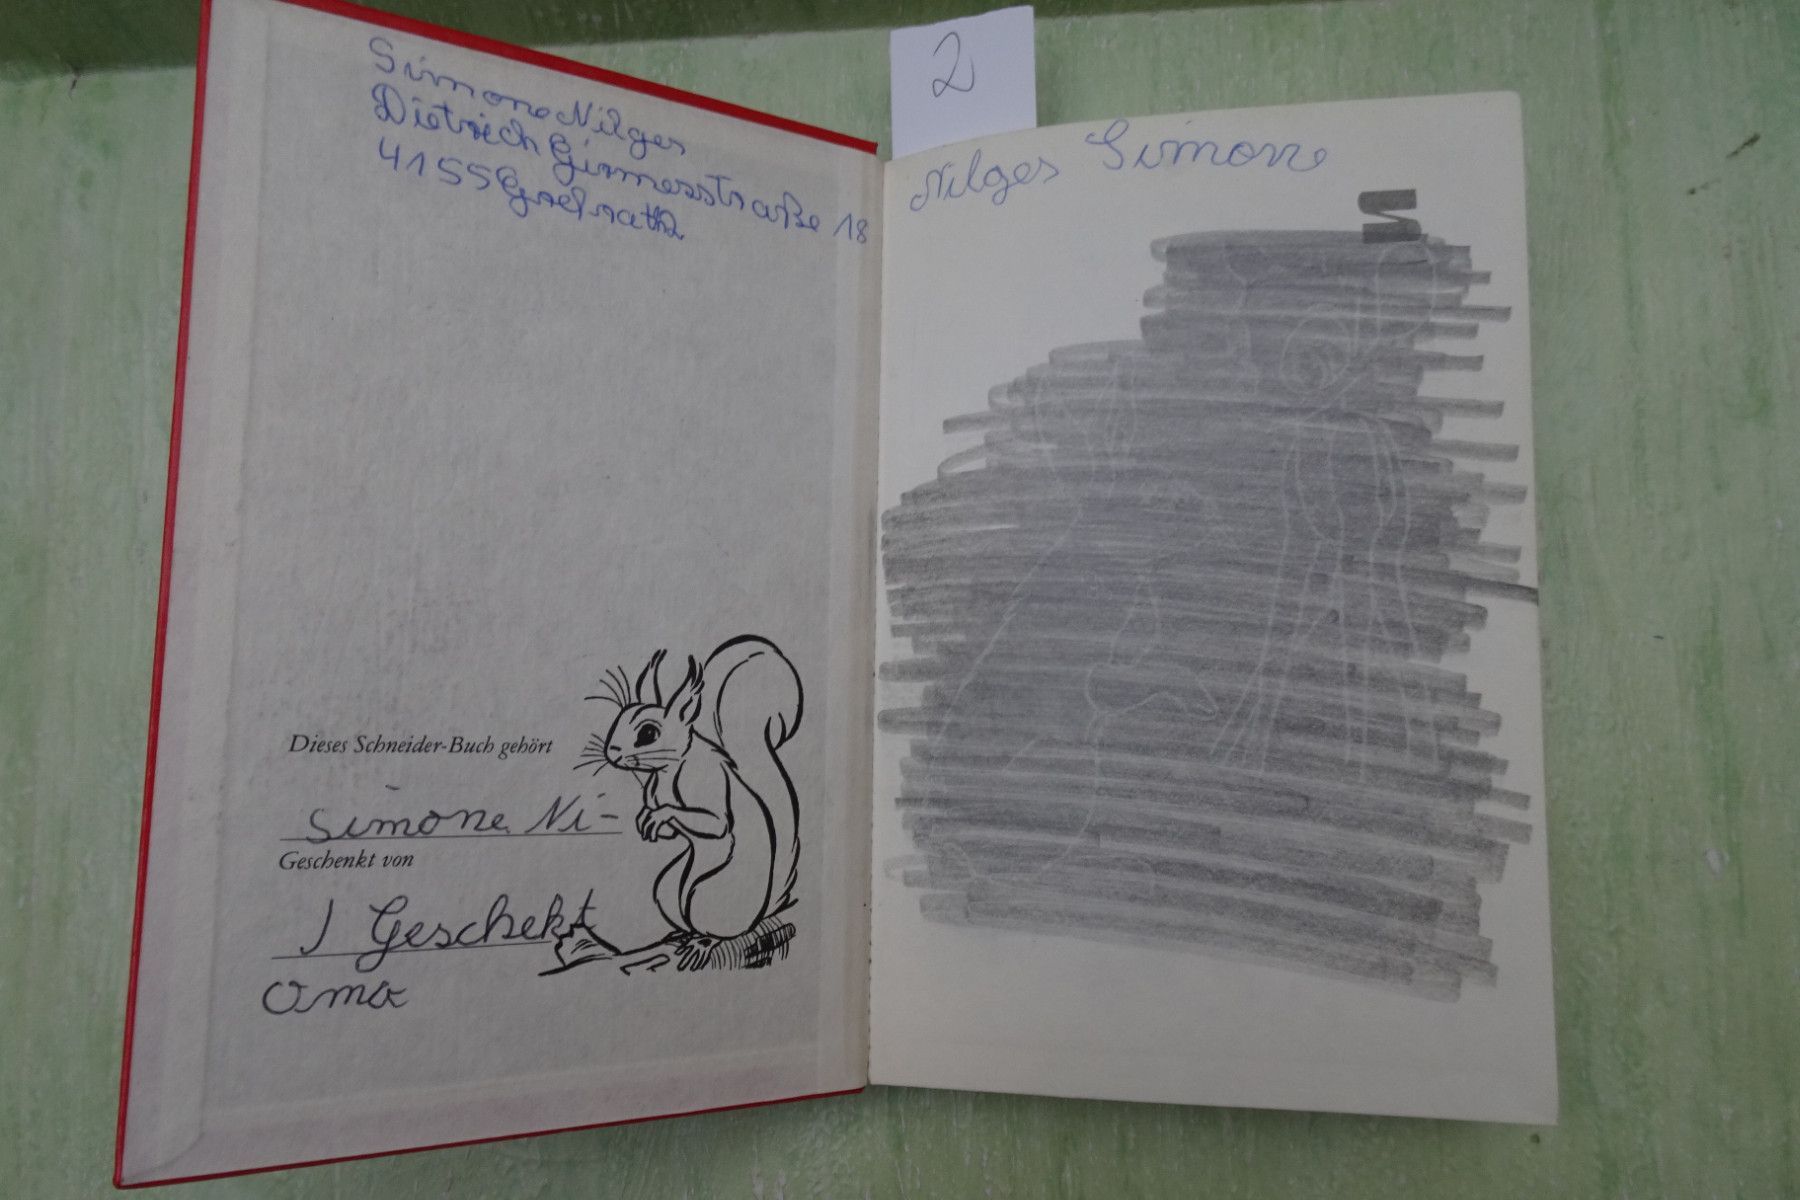 Simone Nilges
Dietrich Girmesstraße 18
4155 Grefrath
Dieses Schneider-Buch gehört
Simone Ni-
Geschenkt von
J Geschekt
Oma
2
Nilges Simone